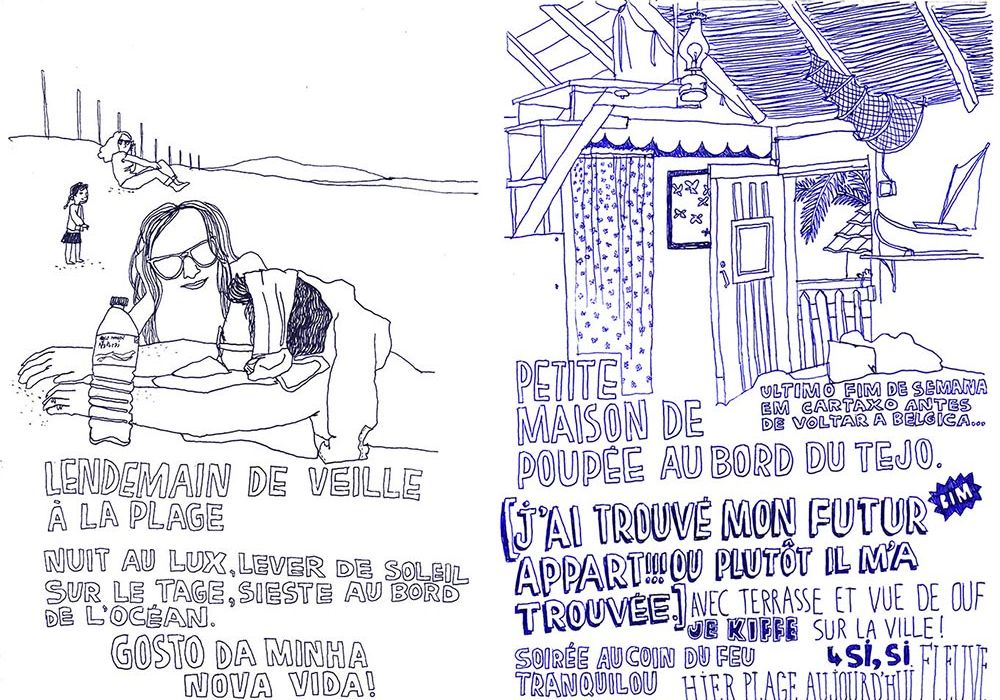 LENDEMAIN DE VEILLE
À LA PLAGE
NUIT AU LUX, LEVER DE SOLEIL
SUR LE TAGE, SIESTE AU BORD
DE L'OCÉAN.
GOSTO DA MINHA
NOVA VIDA!
PETITE
MAISON DE
POUPÉE AU BORD DU TEJO.
ULTIMO FIM DE SEMANA
EM CARTAXO ANTES
DE VOLTAR A BELGICA...
[J'AI TROUVÉ MON FUTUR
APPART!!! OU PLUTÔT IL M'A
TROUVÉE.]
AVEC TERRASSE ET VUE DE OUF
JE KIFFE SUR LA VILLE!
↳ SI, SI
SOIRÉE AU COIN DU FEU
TRANQUILOU
HIER PLAGE AUJOURD'HUI FLEUVE